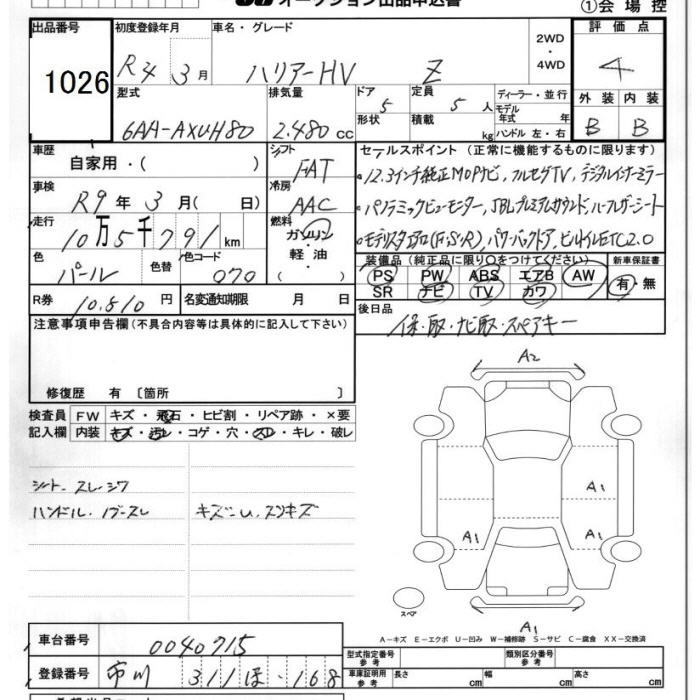 オークション出品申込書
①会場控
出品番号
1026
初度登録年月
R4 3月
車名・グレード
ハリアーHV Z
2WD
・
4WD
評価点
4
型式
6AA-AXUH80
排気量
2.480cc
ドア 5
形状
定員 5人
積載 kg
ディーラー・並行
モデル年式 年
ハンドル 左・右
外装 内装
B B
車歴
自家用・( )
シフト
FAT
車検
R9年3月( 日)
冷房
AAC
走行
10万5千791km
燃料
ガソリン
軽油
・( )
色
パール
色替
色コード
070
R券
10.810円
名変通知期限 月 日
セールスポイント (正常に機能するものに限ります)
・12.3インチ純正MOPナビ, フルセグTV, デジタルインナーミラー
・パノラミックビューモニター, JBLプレミアムサウンド, ハーフレザーシート
・モデリスタエアロ(F・S・R), パワーバックドア, ビルトインETC2.0
装備品 (純正品に限り○をつけてください)
新車保証書
PS PW ABS エアB AW
SR ナビ TV カワ
有・無
後日品
保・取・ナビ取・スペアキー
注意事項申告欄(不具合内容等は具体的に記入して下さい)
修復歴 有 〔箇所 〕
検査員
記入欄
FW キズ・飛石・ヒビ割・リペア跡・×要
内装 キズ・汚レ・コゲ・穴・スレ・キレ・破レ
シート. スレ・シワ
ハンドル・ノブ・スレ
キズ・U, スリキズ
A2
A1
A1
A1
スペア
A1
A-キズ E-エクボ U-凹み W-補修跡 S-サビ C-腐食 XX-交換済
車台番号
0040715
登録番号
市川 311 ほ・168
型式指定番号
参考
類別区分番号
参考
車庫証明用
参考
長さ cm
幅 cm
高さ cm